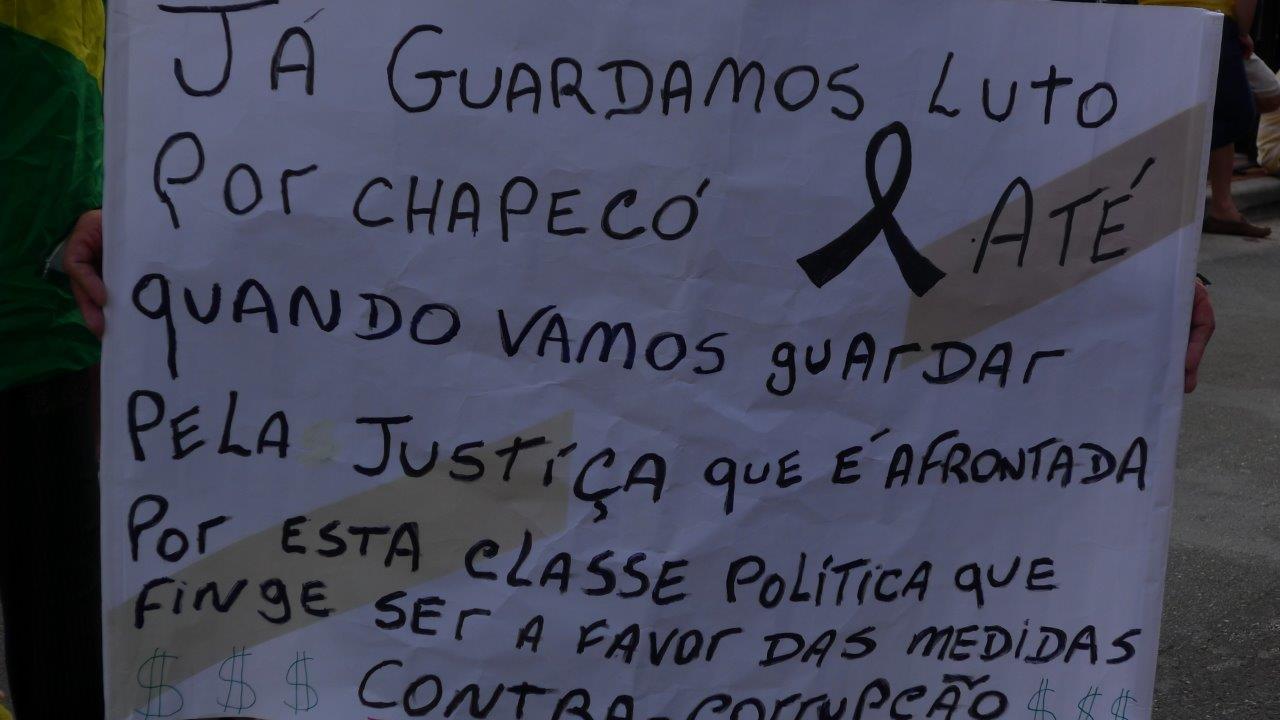 JÁ GUARDAMOS LUTO
POR CHAPECÓ ATÉ
QUANDO VAMOS GUARDAR
PELA JUSTIÇA QUE É AFRONTADA
POR ESTA CLASSE POLÍTICA QUE
FINGE SER A FAVOR DAS MEDIDAS
$ $ $ CONTRA-CORRUPÇÃO $ $ $